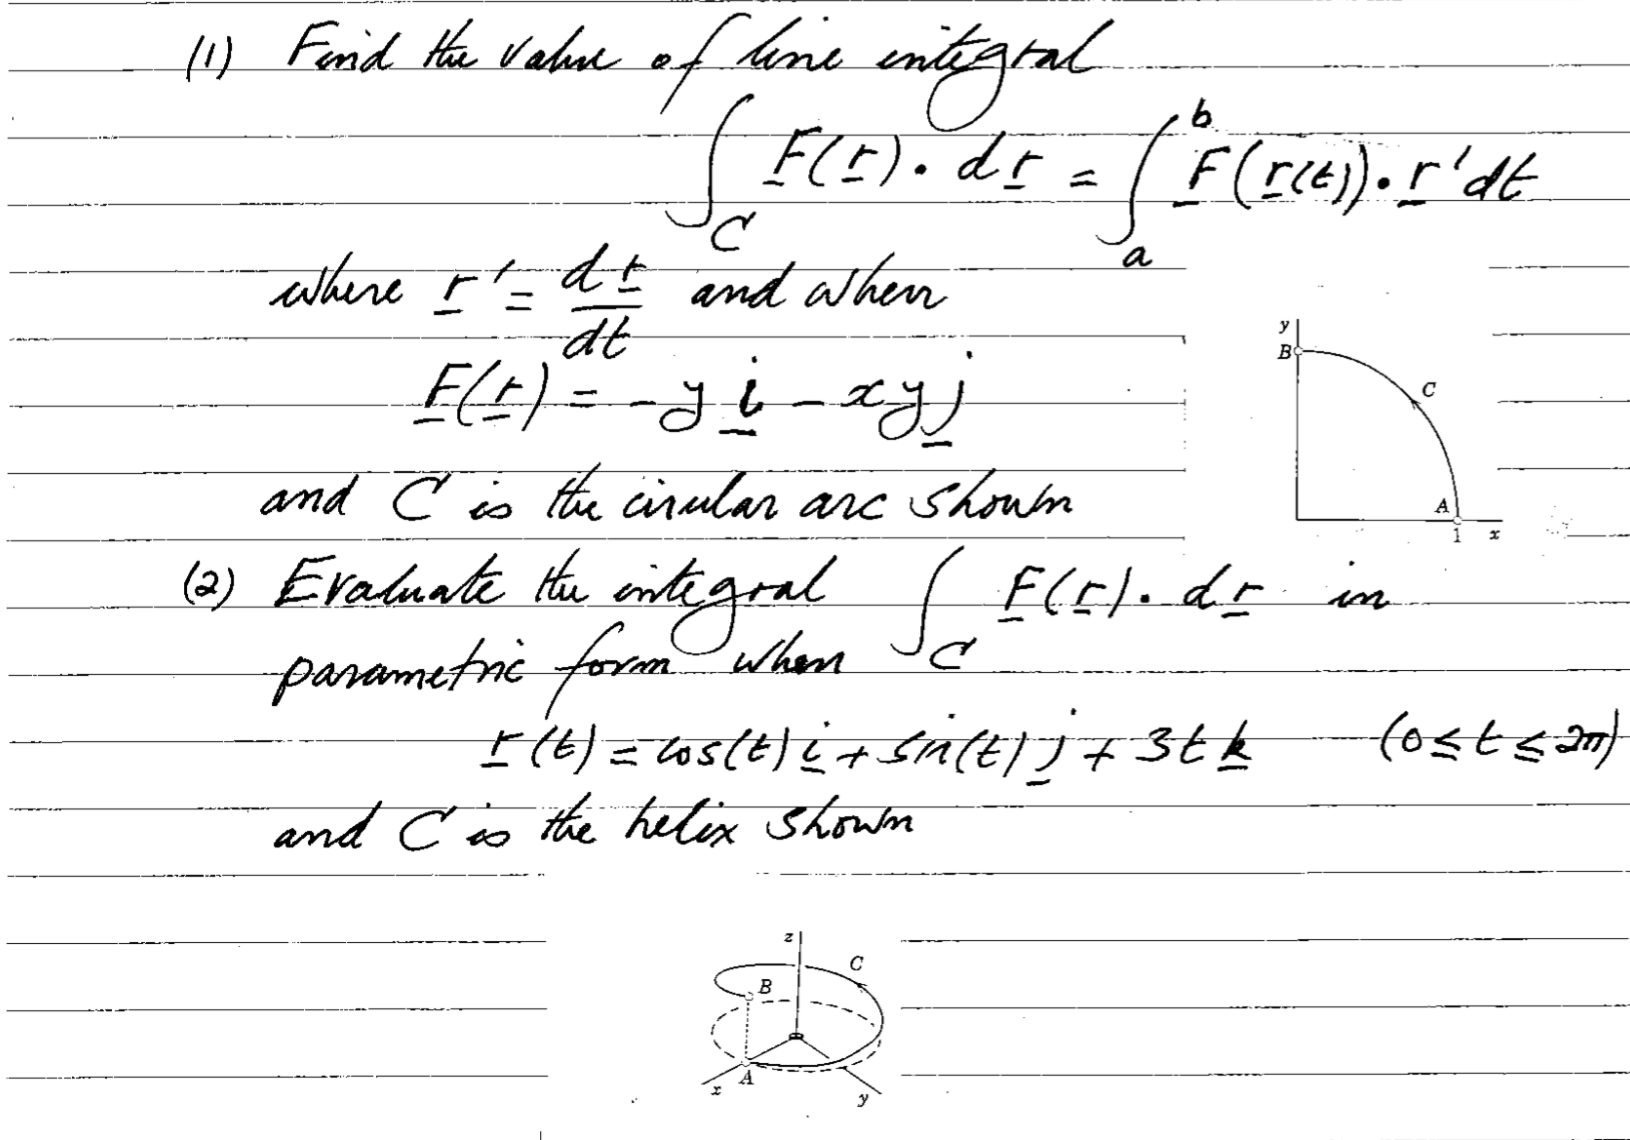 (1) Find the value of line integral
∫_C F(r) · dr = ∫_a^b F(r(t)) · r' dt
where r' = dr/dt and when
F(r) = -y i - xy j
and C is the circular arc shown
y
B
C
A
1 x
(2) Evaluate the integral ∫_C F(r) · dr in
parametric form when
r(t) = cos(t) i + sin(t) j + 3t k (0 ≤ t ≤ 2π)
and C is the helix shown
z
C
B
A
x
y